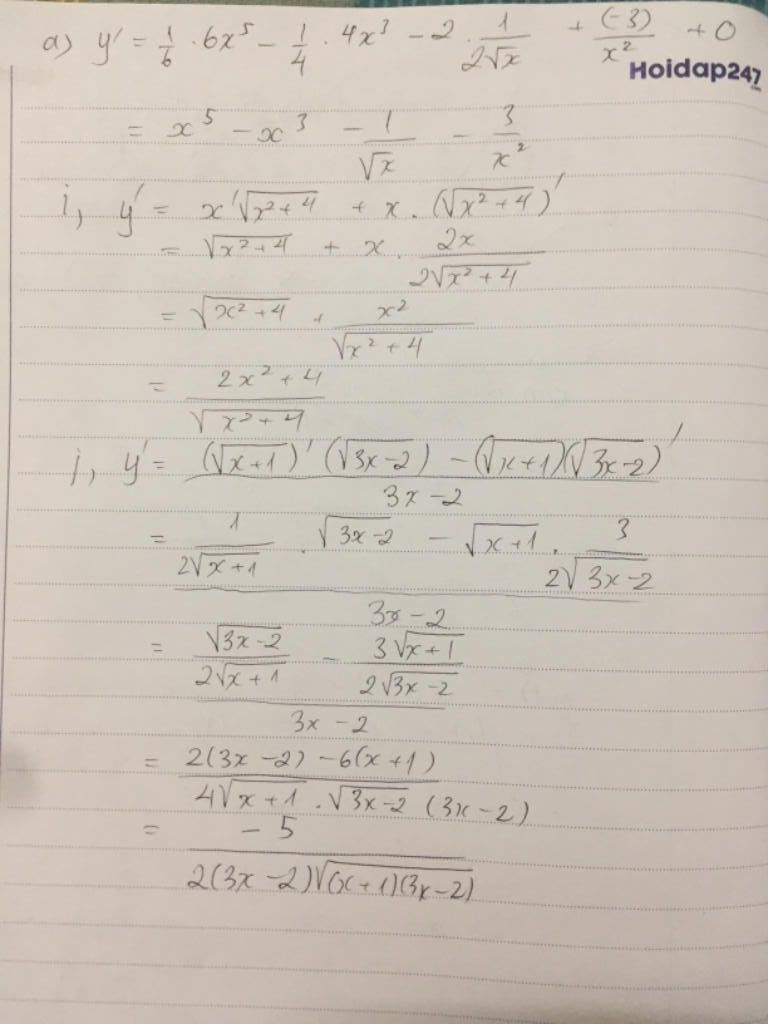 a) y' = 1/6 · 6x⁵ − 1/4 · 4x³ − 2 · 1/(2√x) + (−3)/x² + 0
Hoidap247.com
= x⁵ − x³ − 1/√x − 3/x²
i, y' = x'√(x²+4) + x · (√(x²+4))'
= √(x²+4) + x · 2x/(2√(x²+4))
= √(x²+4) + x²/√(x²+4)
= (2x²+4)/√(x²+4)
j, y' = ((√(x+1))'(√(3x−2)) − (√(x+1))(√(3x−2))')/(3x−2)
= (1/(2√(x+1)) · √(3x−2) − √(x+1) · 3/(2√(3x−2)))/(3x−2)
= (√(3x−2)/(2√(x+1)) − 3√(x+1)/(2√(3x−2)))/(3x−2)
= (2(3x−2) − 6(x+1))/(4√(x+1) · √(3x−2) (3x−2))
= −5/(2(3x−2)√((x+1)(3x−2)))